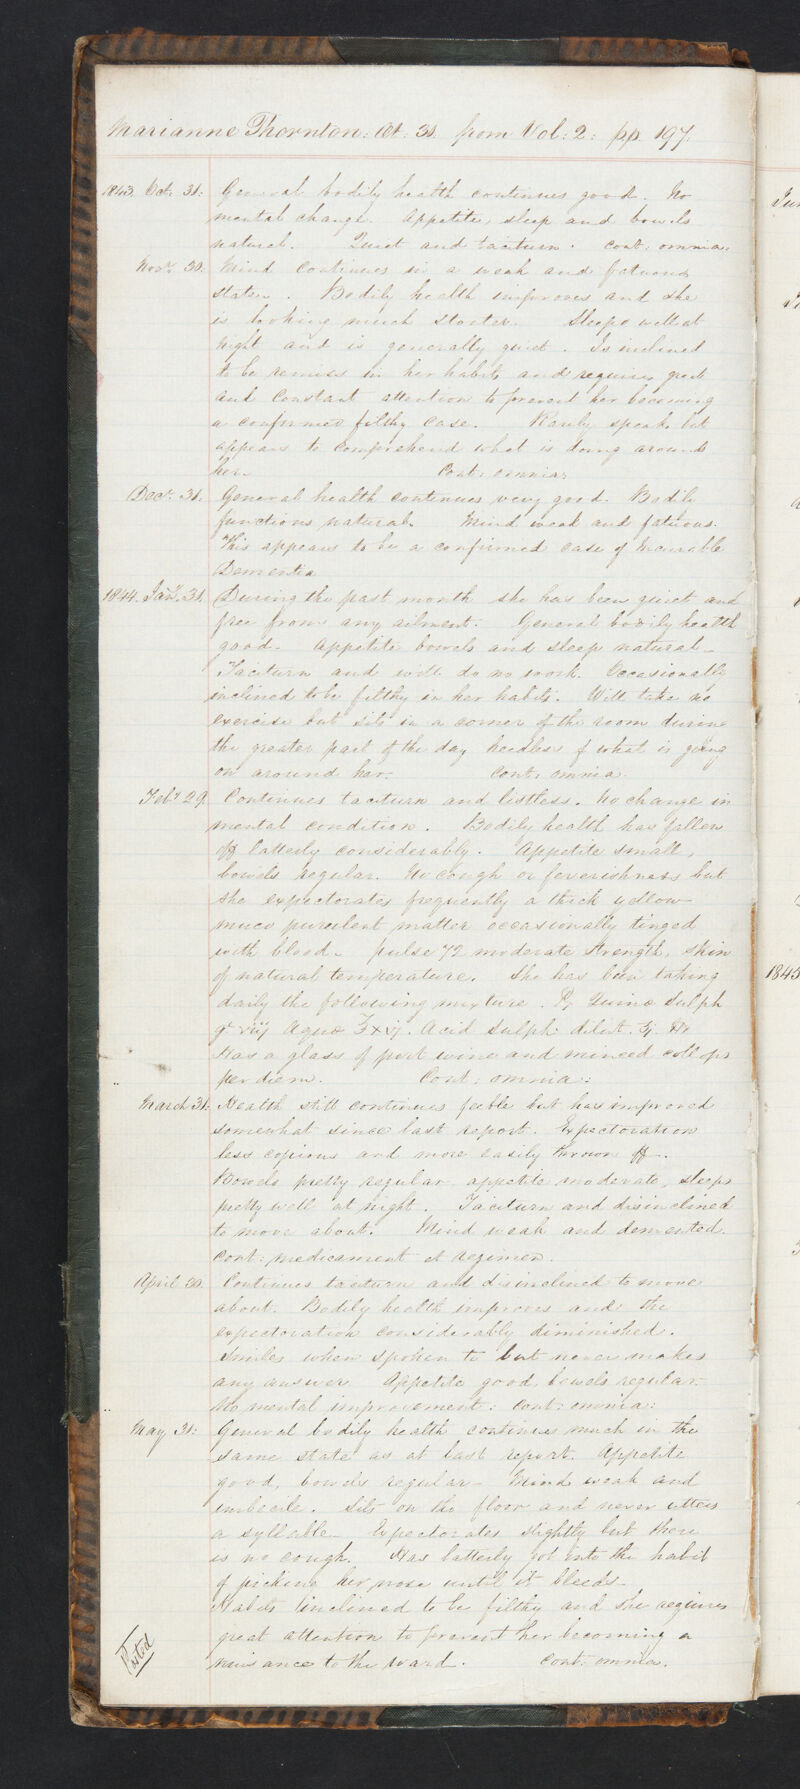 Marianne Thornton: Æt: 31. from Vol: 2: pp. 197.
1843. Oct. 31. General bodily health continues good. No
mental change. Appetite, sleep and bowels
natural. Quiet and taciturn. Cont: omnia.
Novr. 30. Mind continues in a weak and fatuous
state. Bodily health improves and she
is looking much stouter. Sleeps well at
night and is generally quiet. Is inclined
to be remiss in her habits and requires great
and constant attention to prevent her becoming
a confirmed filthy case. Rarely speaks but
appears to comprehend what is doing around
her. Cont: omnia.
Decr. 31. General health continues very good. Bodily
functions natural. Mind weak and fatuous.
This appears to be a confirmed case of Incurable
Dementia
1844. Jany. 31. During the past month she has been quiet and
free from any ailment. General bodily health
good. Appetite bowels and sleep natural.
Taciturn and will do no work. Occasionally
inclined to be filthy in her habits. Will take no
exercise but sits in a corner of the room during
the greater part of the day heedless of what is going
on around her. Cont: omnia.
Feby 29. Continues taciturn and listless. No change in
mental condition. Bodily health has fallen
off latterly considerably. Appetite small,
bowels regular. No cough or feverishness but
she expectorates frequently a thick yellow
muco purulent matter occasionally tinged
with blood. pulse 72 moderate strength, skin
of natural temperature. She has been taking
daily the following mixture. ℞ Quinæ Sulph
gr viij Aquæ ℥xij. Acid Sulph: dilut. ʒj. M
Has a glass of port wine and minced collops
per diem. Cont: omnia:
March 31. Health still continues feeble but has improved
somewhat since last report. Expectoration
less copious and more easily thrown off.
Bowels pretty regular, appetite moderate, sleeps
pretty well at night. Taciturn and disinclined
to move about. Mind weak and demented.
Cont: medicament et regimen.
April 30. Continues taciturn and disinclined to move
about. Bodily health improves and the
expectoration considerably diminished.
Smiles when spoken to but never makes
any answer. Appetite good, bowels regular.
No mental improvement: Cont: omnia:
May 31: General bodily health continues much in the
same state as at last report. Appetite
good, bowels regular. Mind weak and
imbecile. Sits on the floor and never utters
a syllable. Expectorates slightly but there
is no cough. Has latterly got into the habit
of picking her nose until it bleeds.
Habits inclined to be filthy and she requires
great attention to prevent her becoming a
nuisance to the ward. Cont: omnia.
Posted
1845